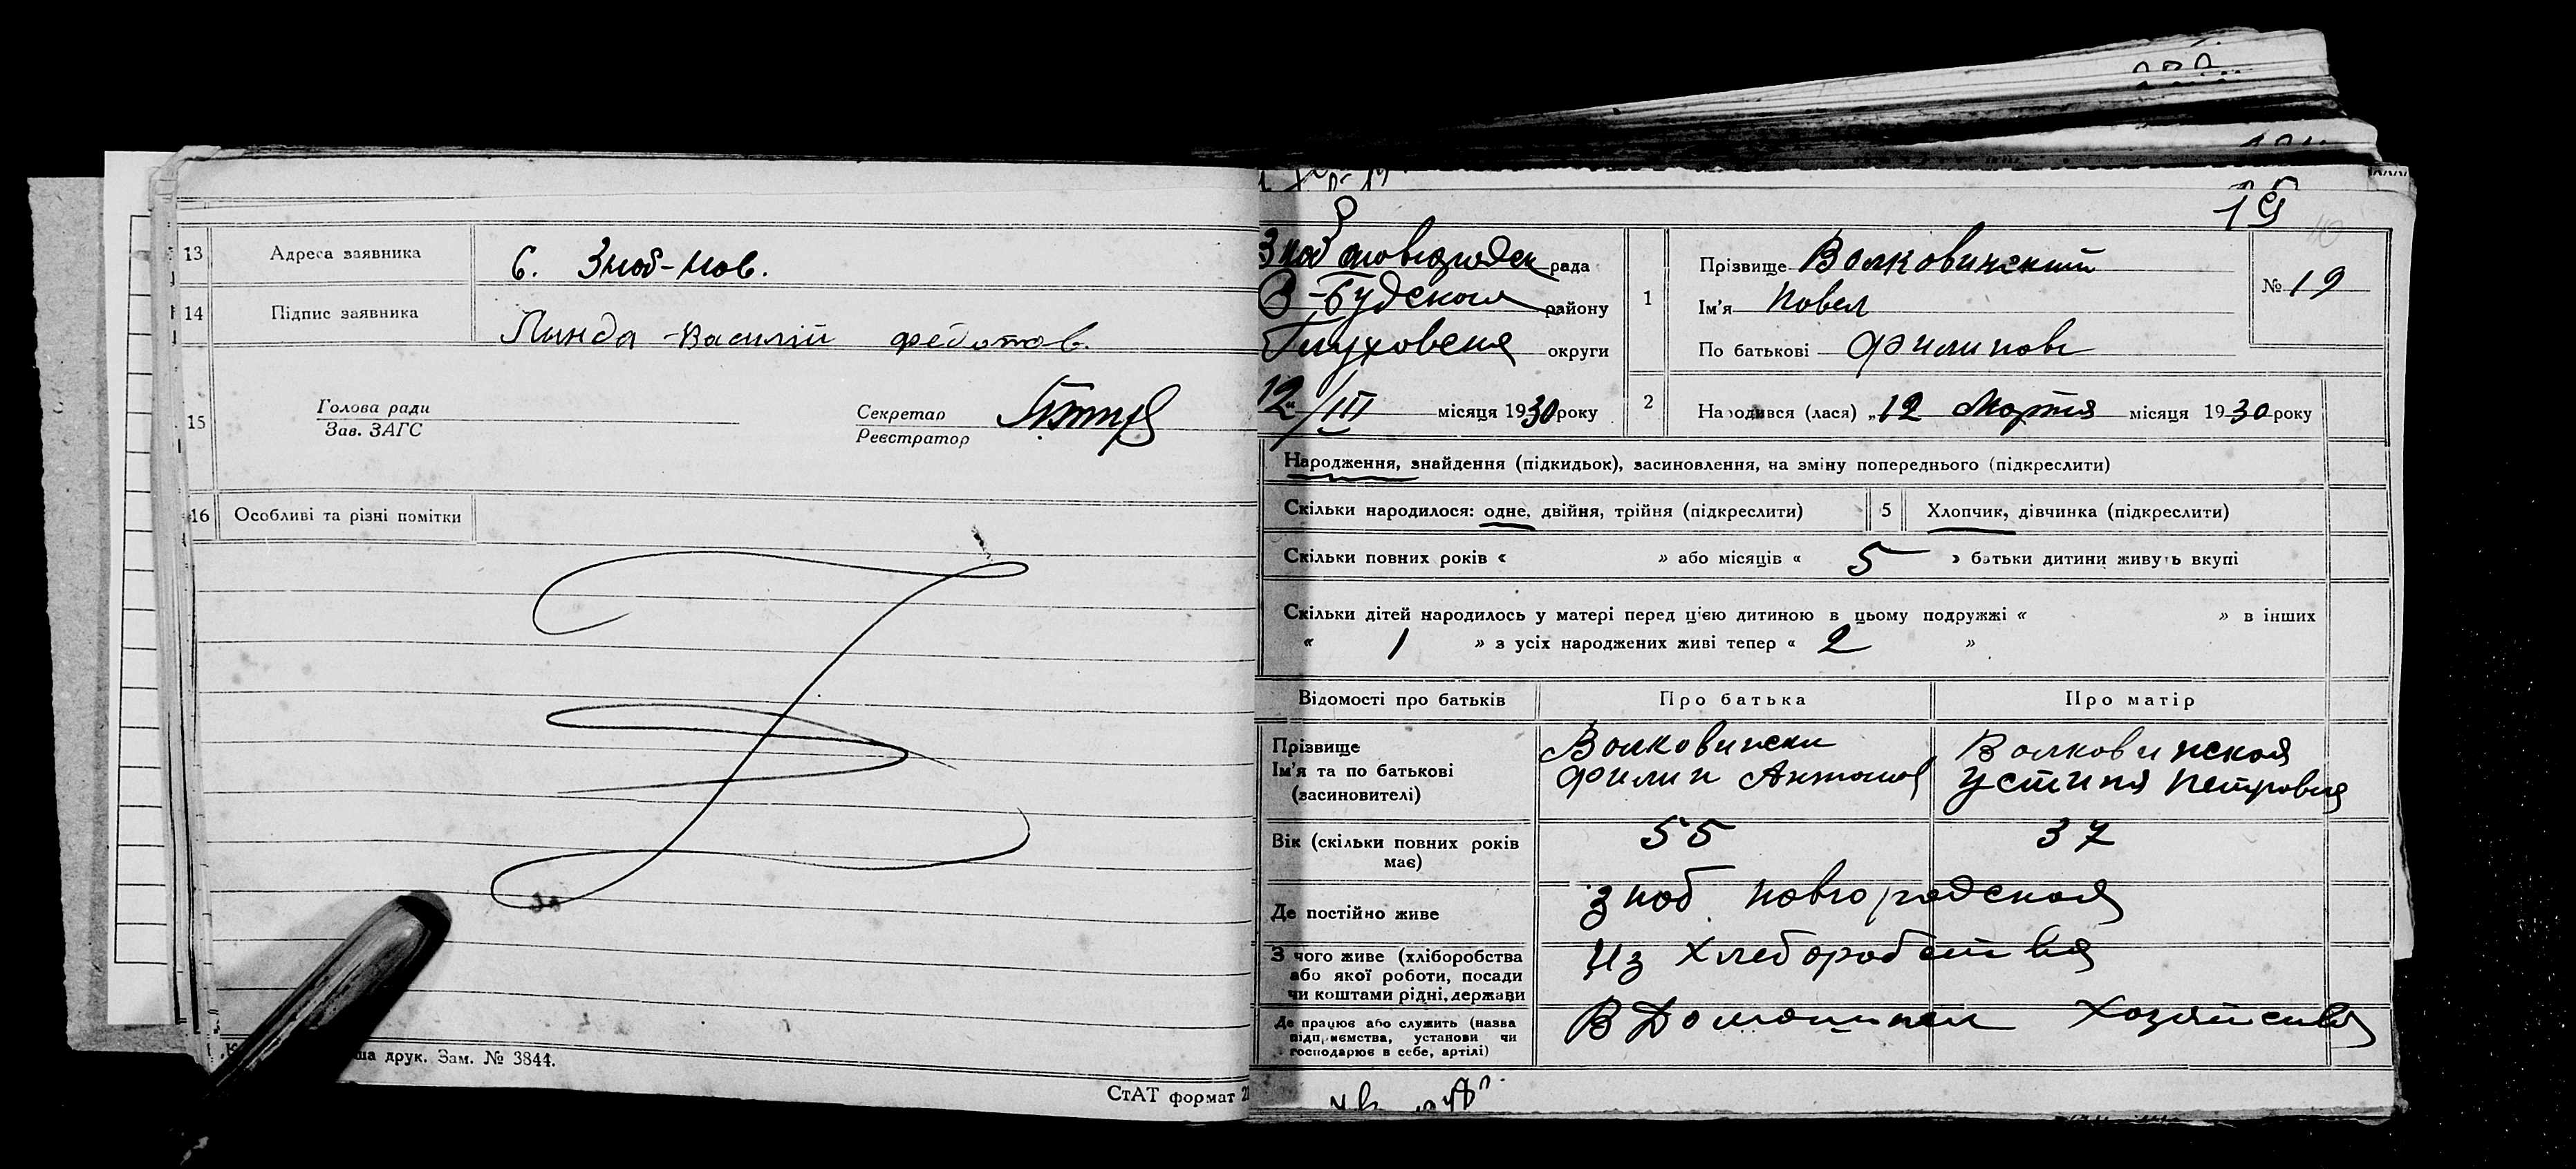 13 Адреса заявника с. Зноб-Нов.
14 Підпис заявника Линда-Василій Федотов.
15 Голова ради
Зав. ЗАГС
Секретар
Реєстратор
16 Особливі та різні помітки
друк. Зам. № 3844.
СтАТ формат
19
Зноб новгродск рада
З-Будская району
Глуховская округи
12/III місяця 1930 року
1 Прізвище Волковинский
Ім'я Повел
По батькові Филипов
№ 19
2 Народився (лася) „12 Мортя місяця 1930 року
Народження, знайдення (підкидьок), засиновлення, на зміну попереднього (підкреслити)
Скільки народилося: одне, двійня, трійня (підкреслити)
5 Хлопчик, дівчинка (підкреслити)
Скільки повних років « » або місяців « 5 » батьки дитини живуть вкупі
Скільки дітей народилось у матері перед цією дитиною в цьому подружжі « » в інших
« 1 » з усіх народжених живі тепер « 2 »
Відомості про батьків Про батька Про матір
Прізвище
Ім'я та по батькові
(засиновителі)
Волковински
Филип Антонов
Волковинская
Устиня Петровня
Вік (скільки повних років
має)
55 37
Де постійно живе Зноб новгородская
З чого живе (хліборобства
або якої роботи, посади
чи коштами рідні, держави
Из хлеборобствя
Де працює або служить (назва
підприємства, установи чи
господарює в себе, артілі)
В Домашнем Хозяйсвя